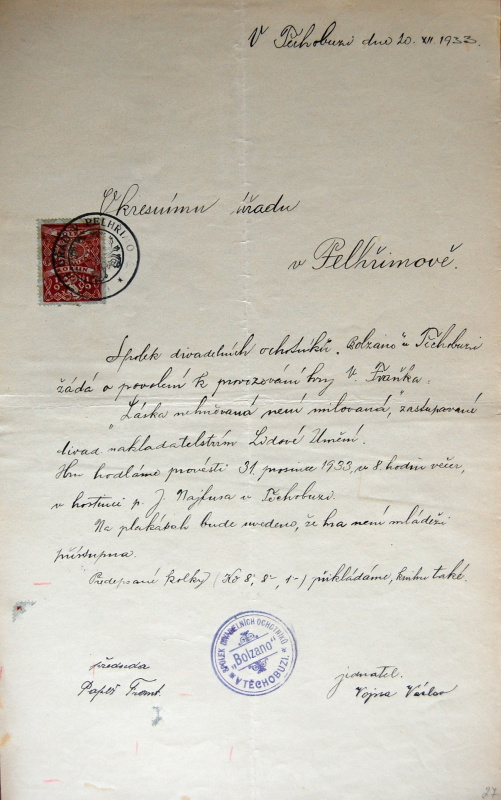 V Těchobuzi dne 20. XII. 1933.
Okresnímu úřadu
v Pelhřimově.
PELHŘIMO
Spolek divadelních ochotníků „Bolzano" v Těchobuzi
žádá o povolení k provozování hry V.
„Láska nehněvaná není milovaná," zastupované
divad. nakladatelstvím Lidové Umění.
Hru hodláme provésti 31. prosince 1933, v 8 hodin večer,
v hostinci p. J. Najlusa v Těchobuzi.
Na plakátech bude uvedeno, že hra není mládeži
přístupna.
Předepsané kolky (Kč 8-, 8-, 1-) přikládáme, knihu také.
SPOLEK DIVADELNÍCH OCHOTNÍKŮ
„Bolzano"
V TĚCHOBUZI.
předseda
Frant.
jednatel.
Vojna Václav
27